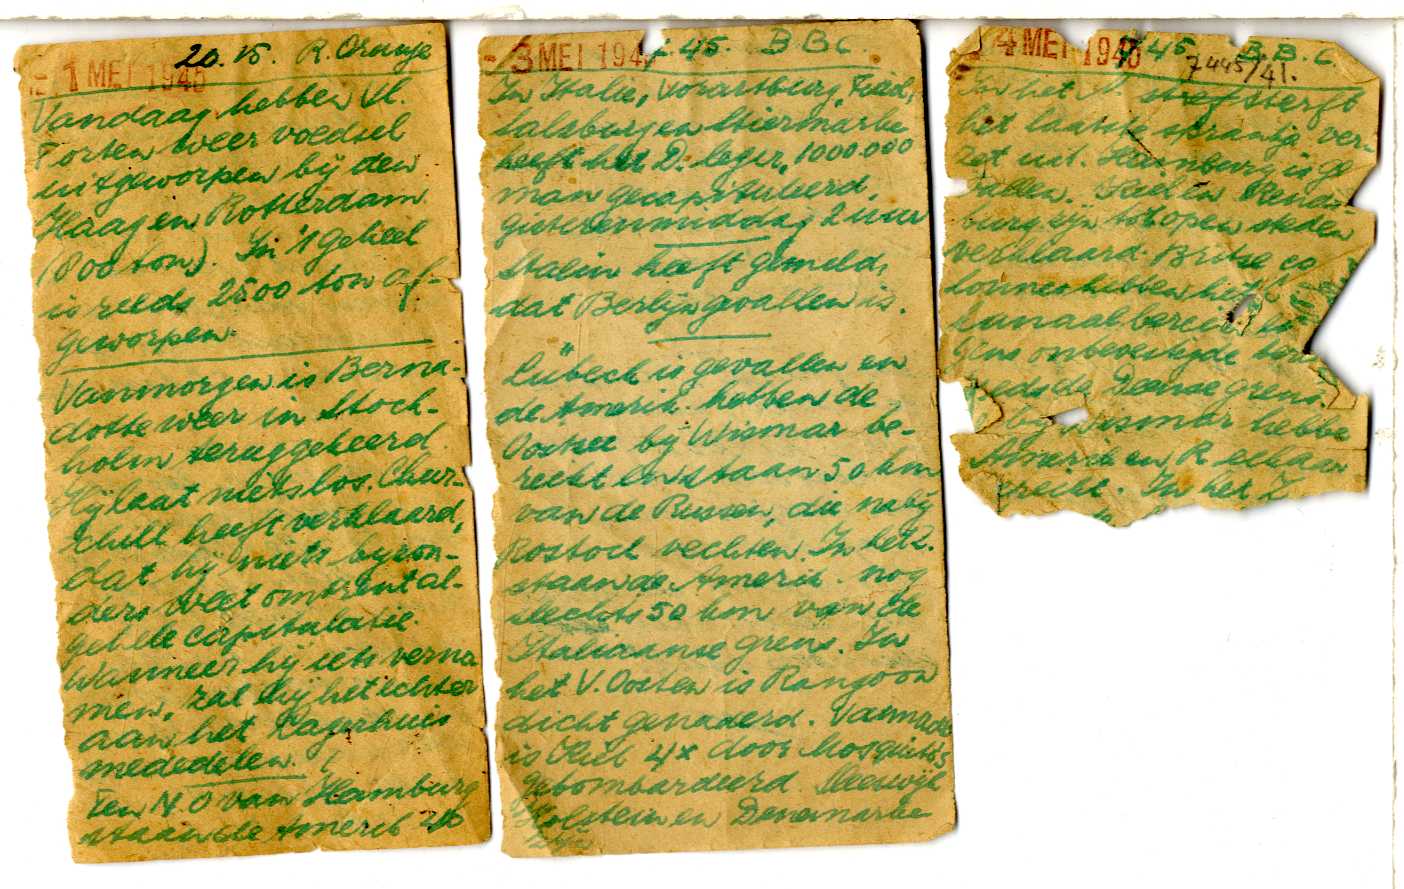 - 1 MEI 1945
20.15 R. Oranje
Vandaag hebben Vl.
Forten weer voedsel
uitgeworpen bij den
Haag en Rotterdam
(800 ton). In 't geheel
is reeds 2500 ton af-
geworpen.
Vanmorgen is Berna-
dotte weer in Stock-
holm teruggekeerd.
Hij laat niets los. Chur-
chill heeft verklaard,
dat hij niets byzon-
ders weet omtrent al-
gehele capitulatie.
Wanneer hij iets verna
men, zal hij het echter
aan het Lagerhuis
mededelen.
Ten N.O van Hamburg
staan de Amerik
- 3 MEI 194
7.45. B B C.
In Italie, Vorarlburg, Tirol,
Salzburg en Stiermarke
heeft het D. leger, 1000.000
man gecapituleerd,
gisterenmiddag 2 uur
Stalin heeft gemeld,
dat Berlijn gevallen is.
Lübeck is gevallen en
de Amerik. hebben de
Oostzee by Wismar be-
reikt en staan 50 km
van de Russen, die naby
Rostock vechten. In het Z.
staan de Amerik. nog
slechts 50 km van de
Italiaanse grens. In
het V. Oosten is Rangoon
dicht genaderd.
is Kiel 4x door Mosquito's
gebombardeerd. Sleeswijk
Holstein en Denemarke
- 4 MEI 1945
7.45. B.B.C.
7445/41.
In het N sterft
het laatste sprantje ver-
zet uit. Hamburg is ge
vallen. Kiel en Rends
burg zijn tot open steden
verklaard. Britse co
lonnes hebben het
kanaal bereikt
gens onbevestigde
reeds de Deense grens
by Wismar hebbe
Amerik en R elkaar
In het Z